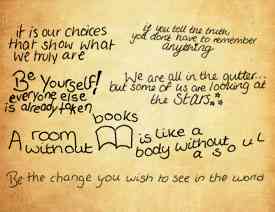 it is our choices
that show what
we truly are
if you tell the truth,
you dont have to remember
anything
Be yourself!
everyone else
is already taken
We are all in the gutter...
but some of us are looking at
the stars
books
A room
without
is like a
body without
a soul
Be the change you wish to see in the world